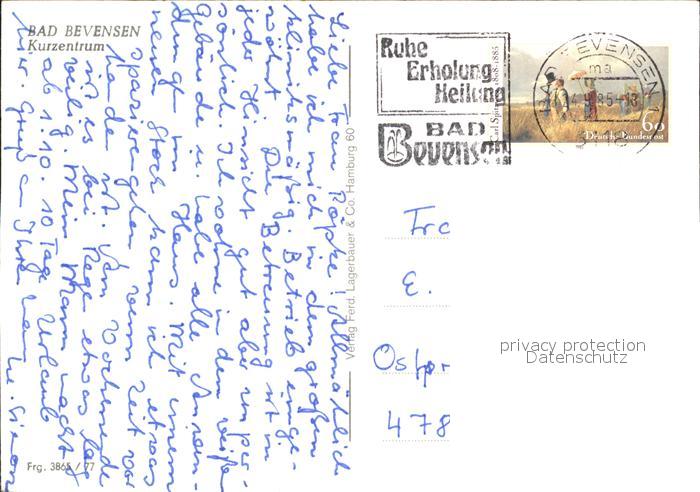 BAD BEVENSEN
Kurzentrum
Liebe Frau Röpke! Allmählich
habe ich mich in dem großen
klinikmäßig. Betrieb einge-
wöhnt. Die Betreuung ist in
jeder Hinsicht gut aber unper-
sönlich. Ich wohne in dem weißen
Gebäude u. habe alle Anwen-
dungen im Haus. Mit meinem
neuen Stock kann ich etwas
spazierengehen wenn Zeit vor-
handen ist. Vom Wochenende
ist es bei Rege etwas lang
weilig. Mein Mann macht
ab 1.10. 10 Tage Urlaub
Gruß an Ihren Mann
Frg. 3865 / 77
Verlag Ferd. Lagerbauer & Co. Hamburg 60
Ruhe
Erholung
Heilung
BAD
Bevensen
BAD BEVENSEN
ma
Carl Spitzweg 1808-1885
60
Deutsche Bundespost
E.
Ostpr
478
privacy protection
Datenschutz